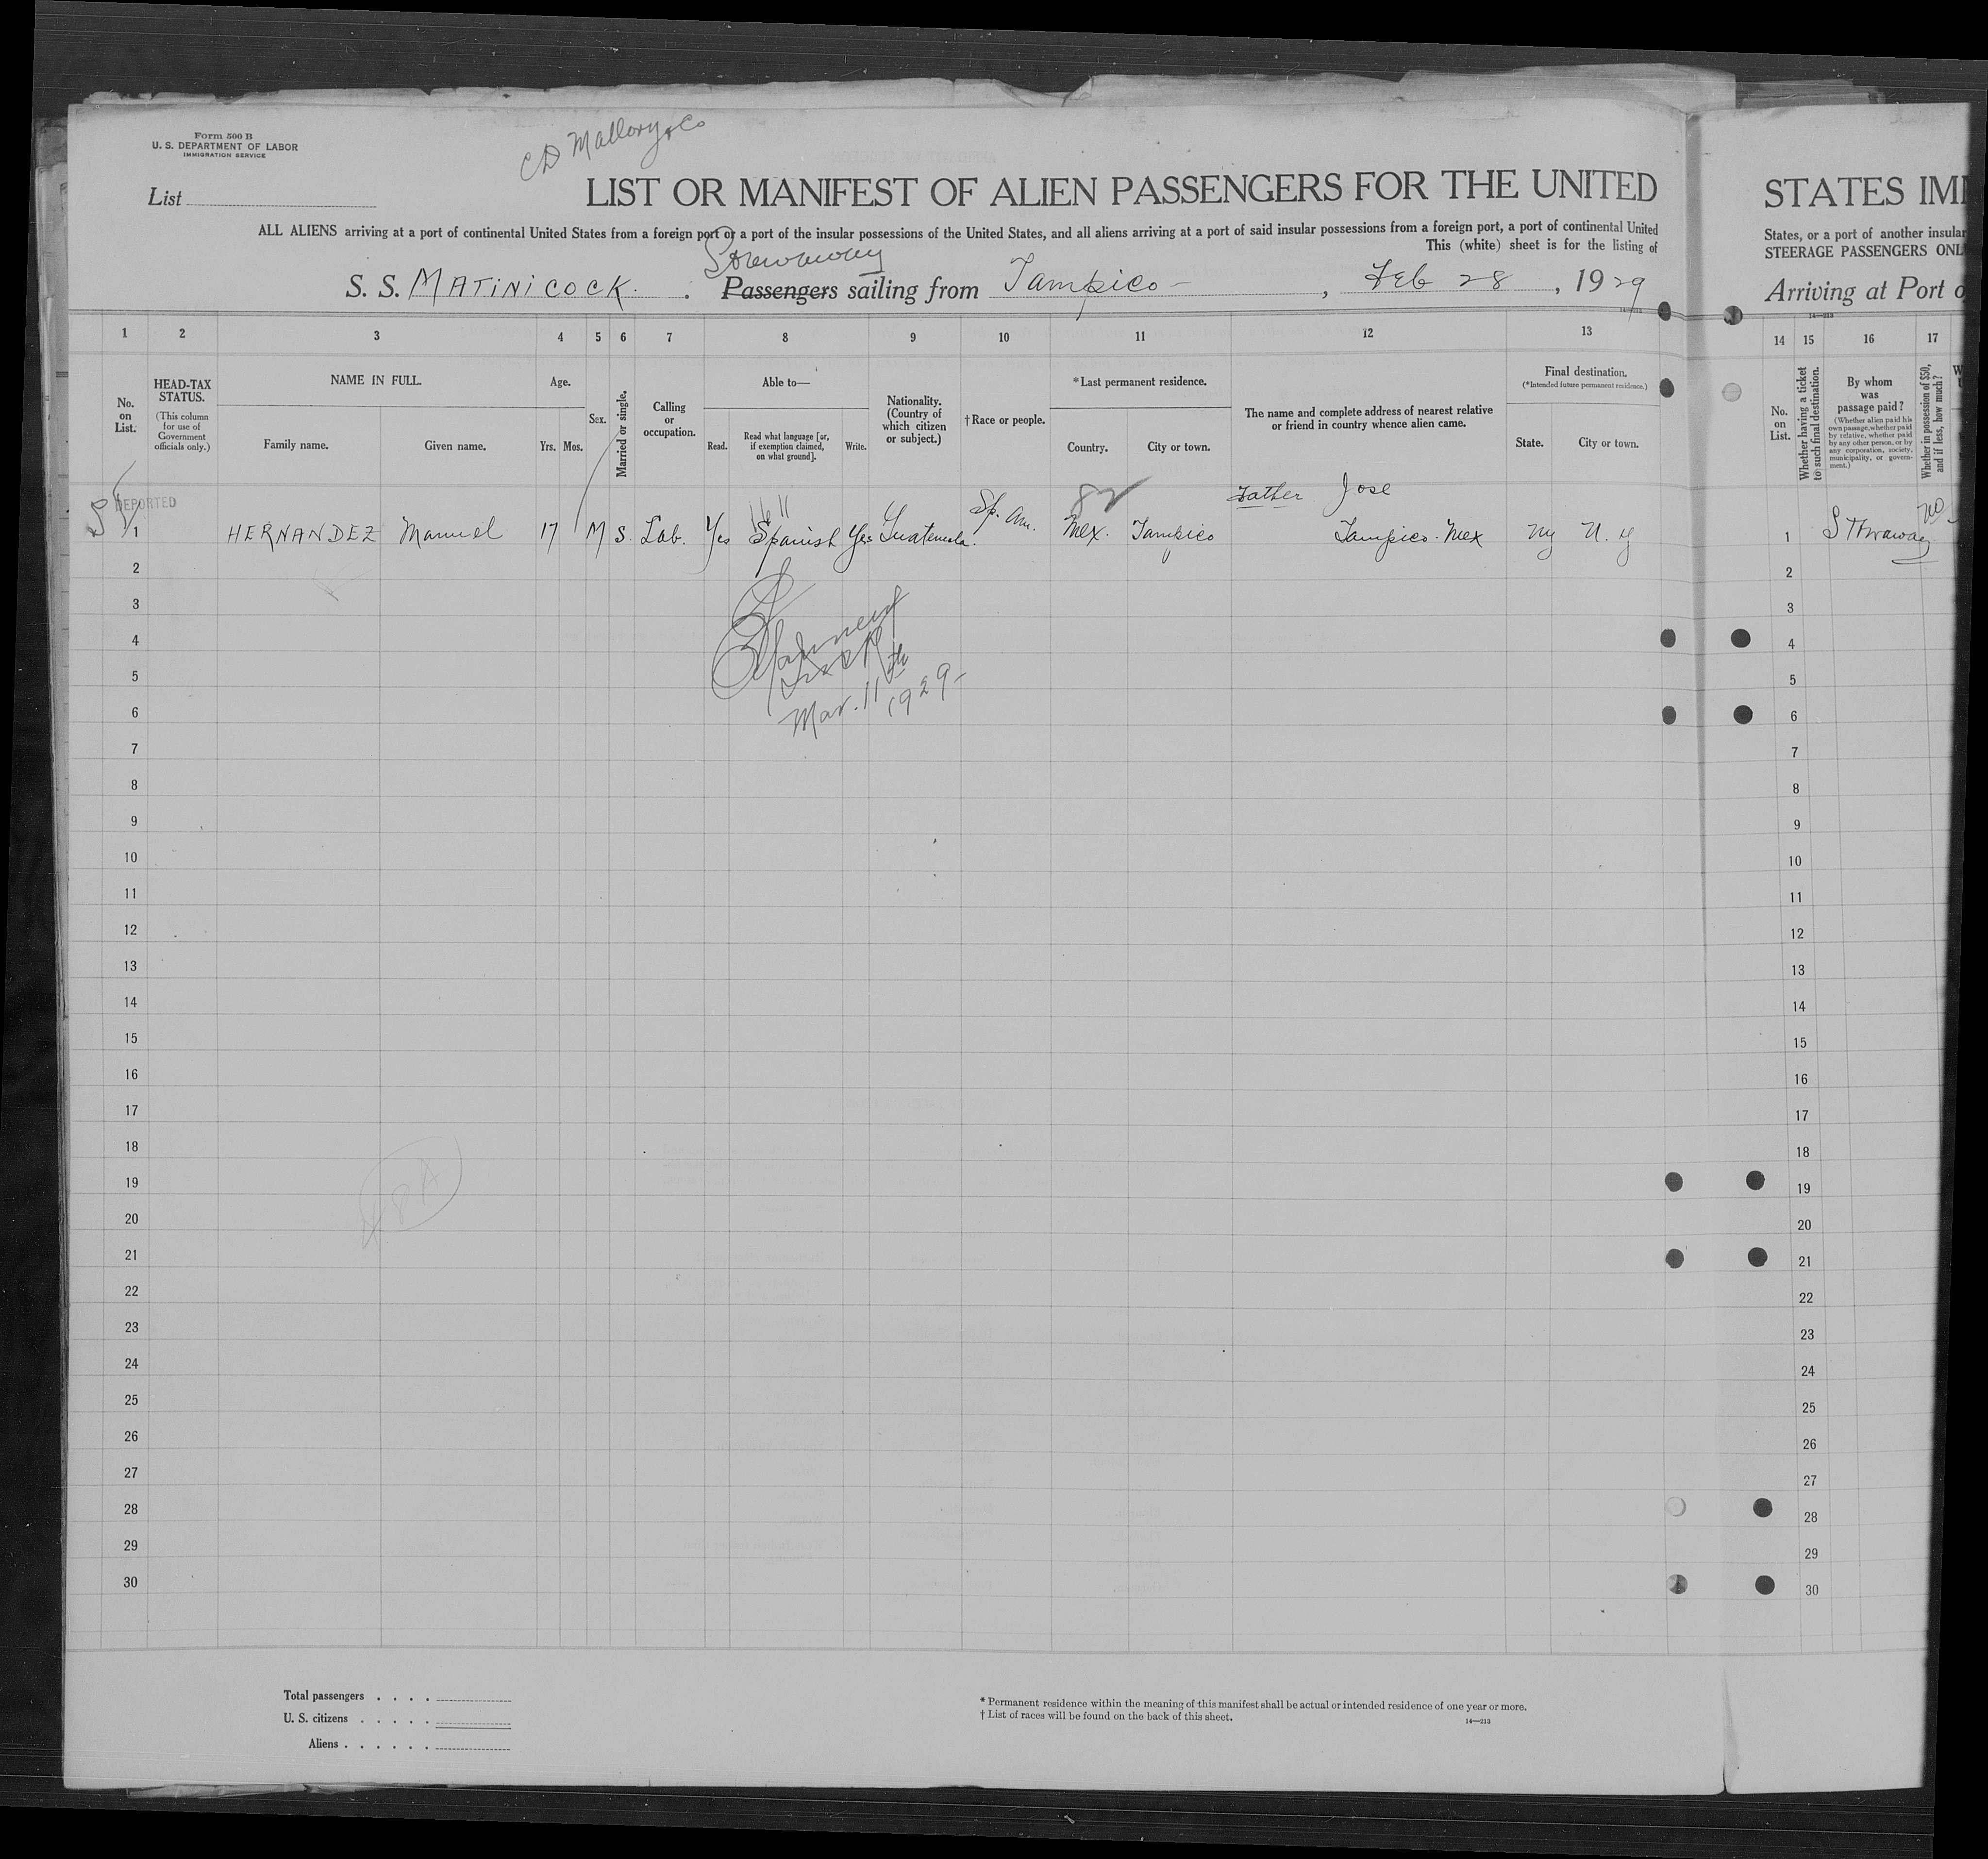 Form 500 B
U. S. DEPARTMENT OF LABOR
IMMIGRATION SERVICE
CD Mallory & Co
List
LIST OR MANIFEST OF ALIEN PASSENGERS FOR THE UNITED
ALL ALIENS arriving at a port of continental United States from a foreign port or a port of the insular possessions of the United States, and all aliens arriving at a port of said insular possessions from a foreign port, a port of continental United
This (white) sheet is for the listing of
Stowaway
S. S. MATINICOCK. Passengers sailing from Tampico - , Feb 28 , 1929
14—213
1 2 3 4 5 6 7 8 9 10 11 12 13
No. on List.
HEAD-TAX STATUS.
(This column for use of Government officials only.)
NAME IN FULL.
Family name.
Given name.
Age.
Yrs. Mos.
Sex.
Married or single.
Calling or occupation.
Able to—
Read.
Read what language [or, if exemption claimed, on what ground].
Write.
Nationality. (Country of which citizen or subject.)
†Race or people.
*Last permanent residence.
Country.
City or town.
The name and complete address of nearest relative or friend in country whence alien came.
Final destination.
(*Intended future permanent residence.)
State.
City or town.
DEPORTED
82
Father Jose
1 HERNANDEZ Manuel 17 M S. Lab. Yes Spanish Yes Guatemala. Sp. Am. Mex. Tampico Tampico. Mex Ny N. y
2
3
4
5
Mar. 11th 1929-
6
7
8
9
10
11
12
13
14
15
16
17
18
19
20
21
22
23
24
25
26
27
28
29
30
Total passengers . . . .
U. S. citizens . . . . .
Aliens . . . . . .
* Permanent residence within the meaning of this manifest shall be actual or intended residence of one year or more.
† List of races will be found on the back of this sheet.
14—213
STATES IM
States, or a port of another insular
STEERAGE PASSENGERS ONL
Arriving at Port o
14—213
14 15 16 17
No. on List.
Whether having a ticket to such final destination.
By whom was passage paid?
(Whether alien paid his own passage, whether paid by relative, whether paid by any other person, or by any corporation, society, municipality, or government.)
Whether in possession of $50, and if less, how much?
1 Sthowaway no
2
3
4
5
6
7
8
9
10
11
12
13
14
15
16
17
18
19
20
21
22
23
24
25
26
27
28
29
30